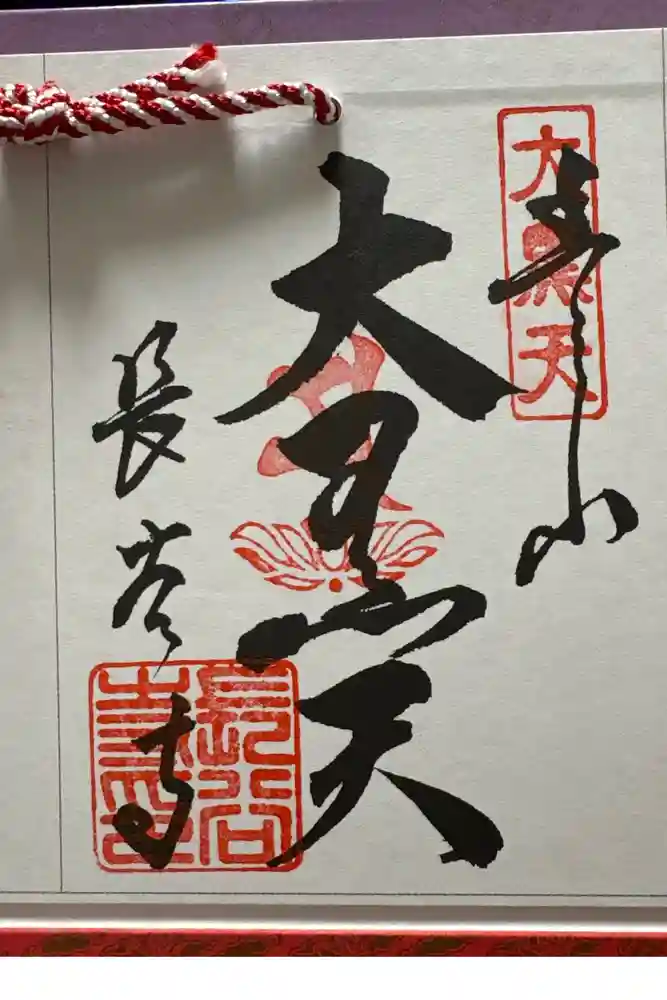 豊山
大黒天
大黒天
長谷寺
長谷寺印